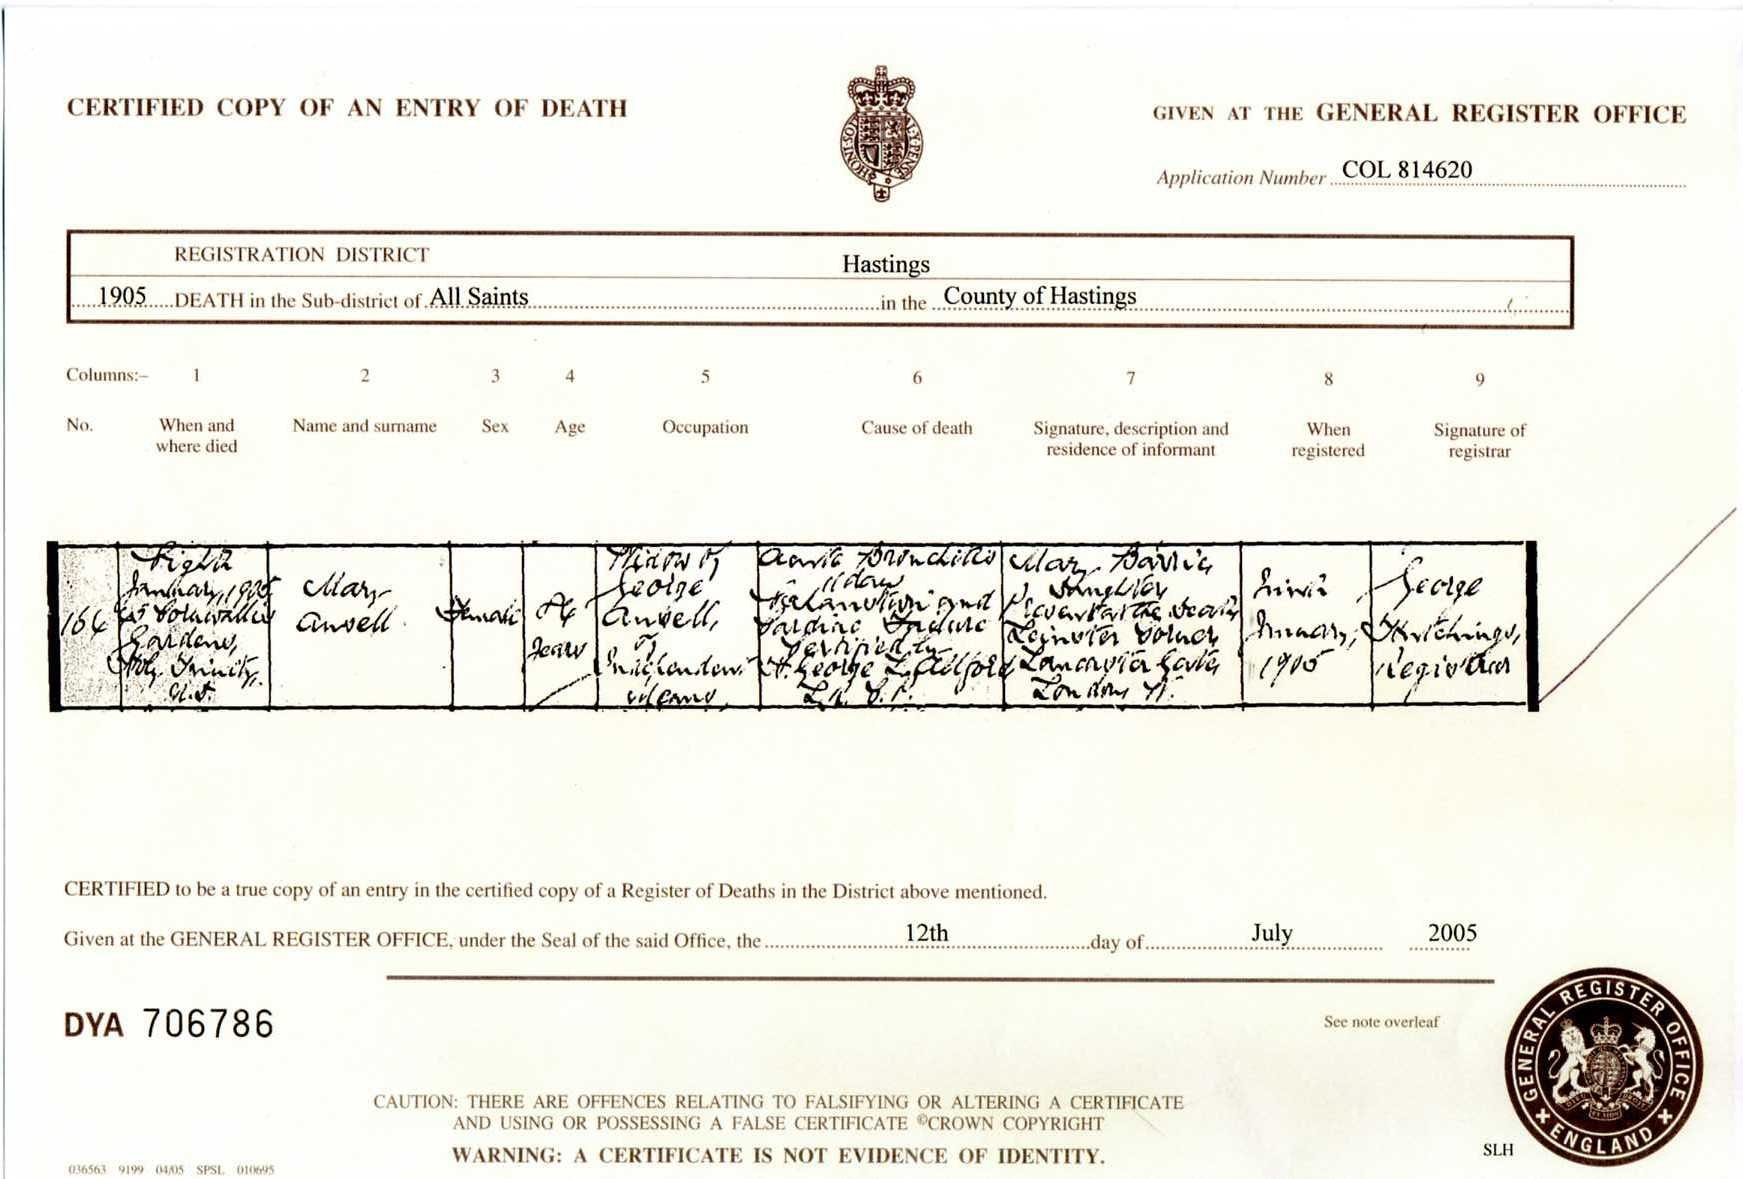 CERTIFIED COPY OF AN ENTRY OF DEATH
GIVEN AT THE GENERAL REGISTER OFFICE
HONI·SOIT
MAL·Y·PENSE
Application Number COL 814620
REGISTRATION DISTRICT Hastings
1905 DEATH in the Sub-district of All Saints in the County of Hastings
Columns:– 1 2 3 4 5 6 7 8 9
No. When and where died Name and surname Sex Age Occupation Cause of death Signature, description and residence of informant When registered Signature of registrar
164
Eighth
January, 1905
Cornwallis
Gardens,
Holy Trinity,
Mary
Ansell
Female
Years
Widow of
George
Ansell,
of
Independent
Means
Acute Bronchitis
11 days
Exhaustion and
Cardiac Failure
Certified by
George
Mary Barrie
Daughter
Present at the death
Leinster Corner
Lancaster Gate
London W.
Ninth
January,
1905
George
Hutchings,
Registrar
CERTIFIED to be a true copy of an entry in the certified copy of a Register of Deaths in the District above mentioned.
Given at the GENERAL REGISTER OFFICE, under the Seal of the said Office, the 12th day of July 2005
DYA 706786
See note overleaf
GENERAL REGISTER OFFICE
ENGLAND
CAUTION: THERE ARE OFFENCES RELATING TO FALSIFYING OR ALTERING A CERTIFICATE
AND USING OR POSSESSING A FALSE CERTIFICATE ©CROWN COPYRIGHT
WARNING: A CERTIFICATE IS NOT EVIDENCE OF IDENTITY.
SLH
036563 9199 04/05 SPSL 010695